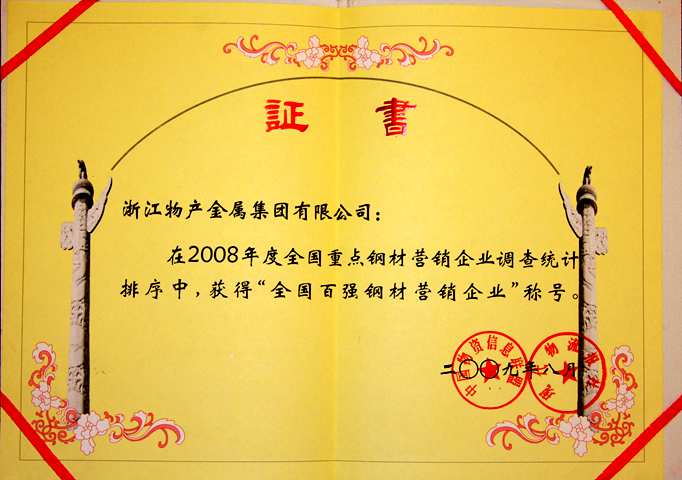 証書
浙江物产金属集团有限公司：
在2008年度全国重点钢材营销企业调查统计
排序中，获得“全国百强钢材营销企业”称号。
二〇〇九年八月
中国物资信息联盟
现代物流报社